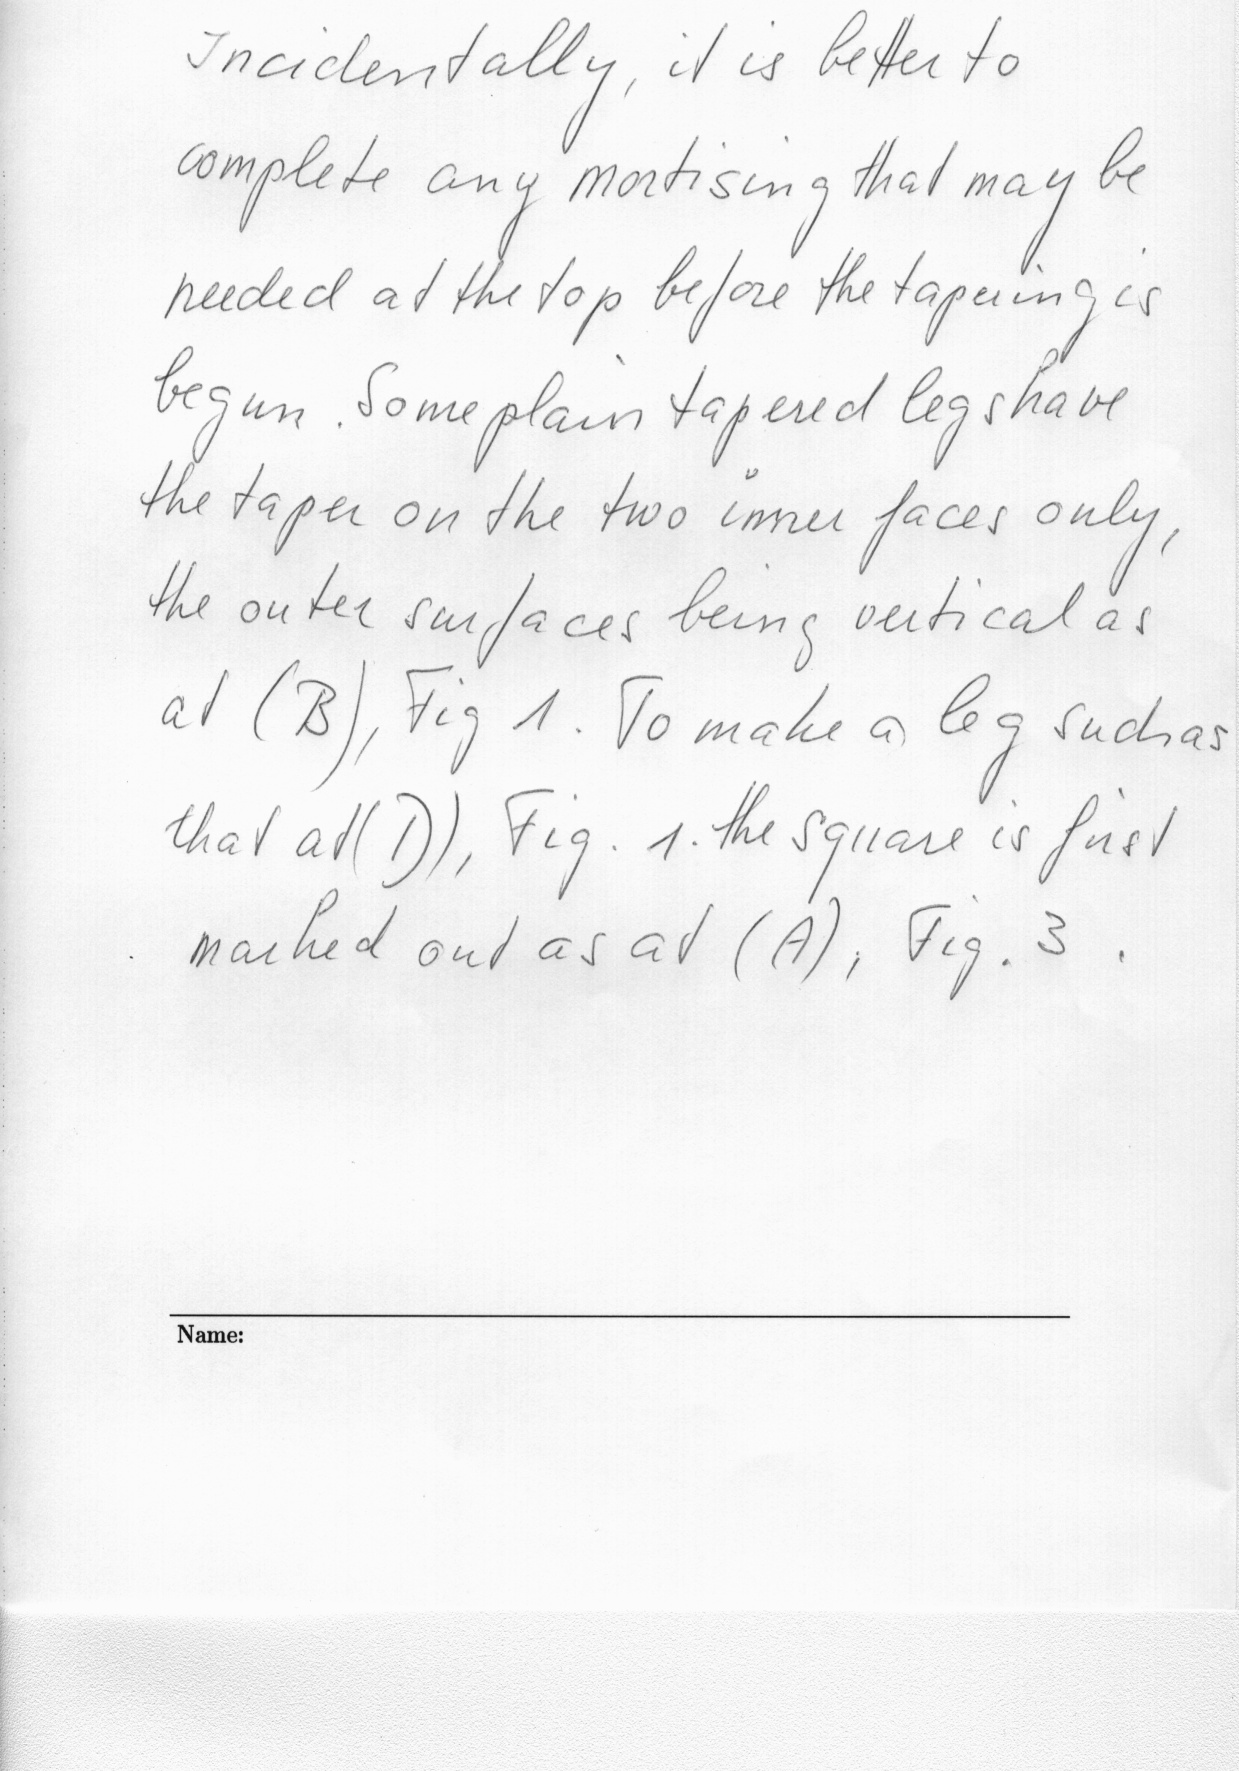 Incidentally, it is better to
complete any mortising that may be
needed at the top before the tapering is
begun. Some plain tapered legs have
the taper on the two inner faces only,
the outer surfaces being vertical as
at (B), Fig 1. To make a leg such as
that at (D), Fig. 1. the square is first
marked out as at (A), Fig. 3.
Name: